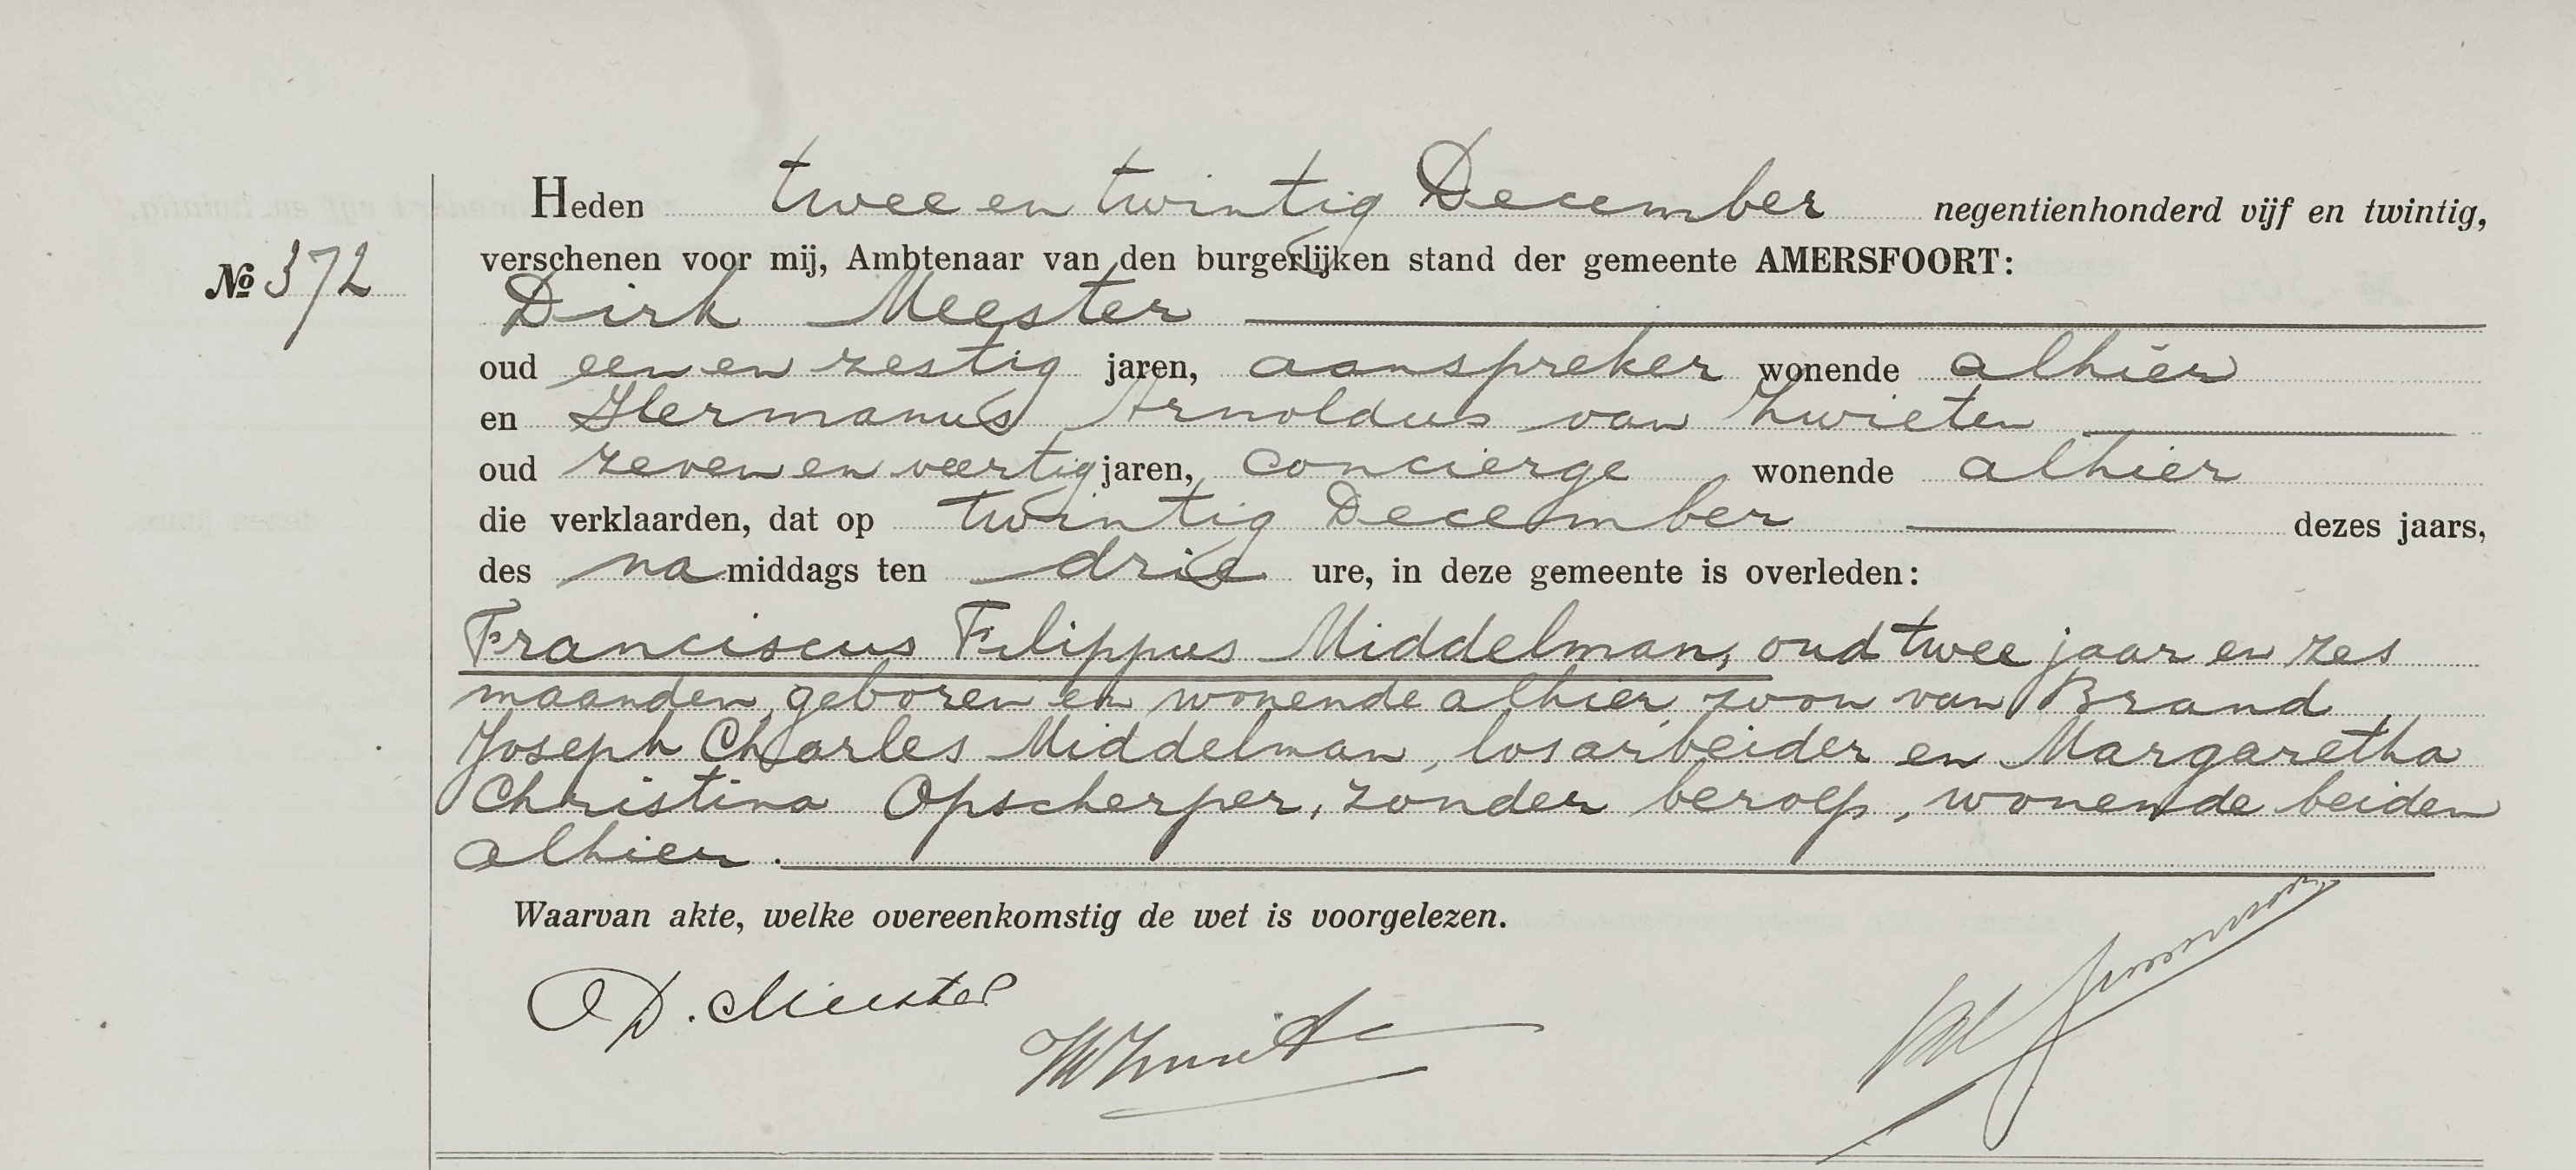 Heden twee en twintig December negentienhonderd vijf en twintig,
verschenen voor mij, Ambtenaar van den burgerlijken stand der gemeente AMERSFOORT:
№ 372
Dirk Meester
oud een en zestig jaren, aanspreker wonende alhier
en Hermanus Arnoldus van Zwieten
oud zeven en veertig jaren, concierge wonende alhier
die verklaarden, dat op twintig December dezes jaars,
des na middags ten drie ure, in deze gemeente is overleden:
Franciscus Filippus Middelman, oud twee jaar en zes
maanden, geboren en wonende alhier, zoon van Brand
Joseph Charles Middelman, losarbeider en Margaretha
Christina Opscherper, zonder beroep, wonende beiden
alhier.
Waarvan akte, welke overeenkomstig de wet is voorgelezen.
D. Meester